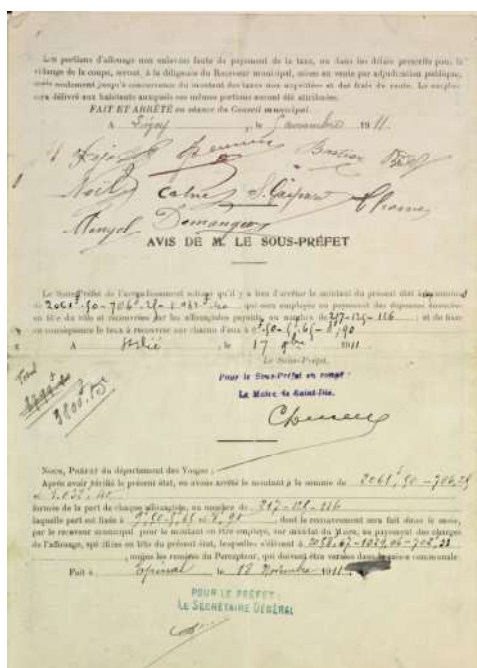 Les portions d'allouage non enlevées faute de payement de la taxe, ou dans les délais prescrits pour la
vidange de la coupe, seront, à la diligence du Receveur municipal, mises en vente par adjudication publique,
mais seulement jusqu'à concurrence du montant des taxes non acquittées et des frais de vente. Le surplus
sera délivré aux habitants auxquels ces mêmes portions auront été attribuées.
FAIT ET ARRÊTÉ en séance du Conseil municipal.
A , le novembre 1911.
Bastien
Noël Calme S. Gaspard Thomas
Mengel Demange
AVIS DE M. LE SOUS-PRÉFET
Le Sous-Préfet de l'arrondissement estime qu'il y a lieu d'arrêter le montant du présent état à la somme
de 2061f,50 - 706,28 - qui sera employée au payement des dépenses énoncées
en tête du rôle et recouvrées sur les allouagistes payants, au nombre de 217-125-116 , et de fixer
en conséquence la taxe à recouvrer sur chacun d'eux à 9f,50-5f,65-8f,90
A St Dié , le 17 9bre 1911.
Le Sous-Préfet,
Pour le Sous-Préfet en congé :
Le Maire de Saint-Dié,
Total
3800f,
NOUS, PRÉFET du département des Vosges ;
Après avoir vérifié le présent état, en avons arrêté le montant à la somme de 2061f,50 - 706,28
formée de la part de chaque allouagiste, au nombre de 217-125-116
laquelle part est fixée à 9f,50-5,65 et 8f,90 , dont le recouvrement sera fait dans le mois,
par le receveur municipal pour le montant en être employé, sur mandat du Maire, au payement des charges
de l'affouage, spécifiées en tête du présent état, lesquelles s'élèvent à 2058,67-1029,06-702,23
, moins les remises du Percepteur, qui doivent être versées dans la caisse communale.
Fait à Epinal , le 18 Novembre 1911
POUR LE PRÉFET :
LE SECRÉTAIRE GÉNÉRAL